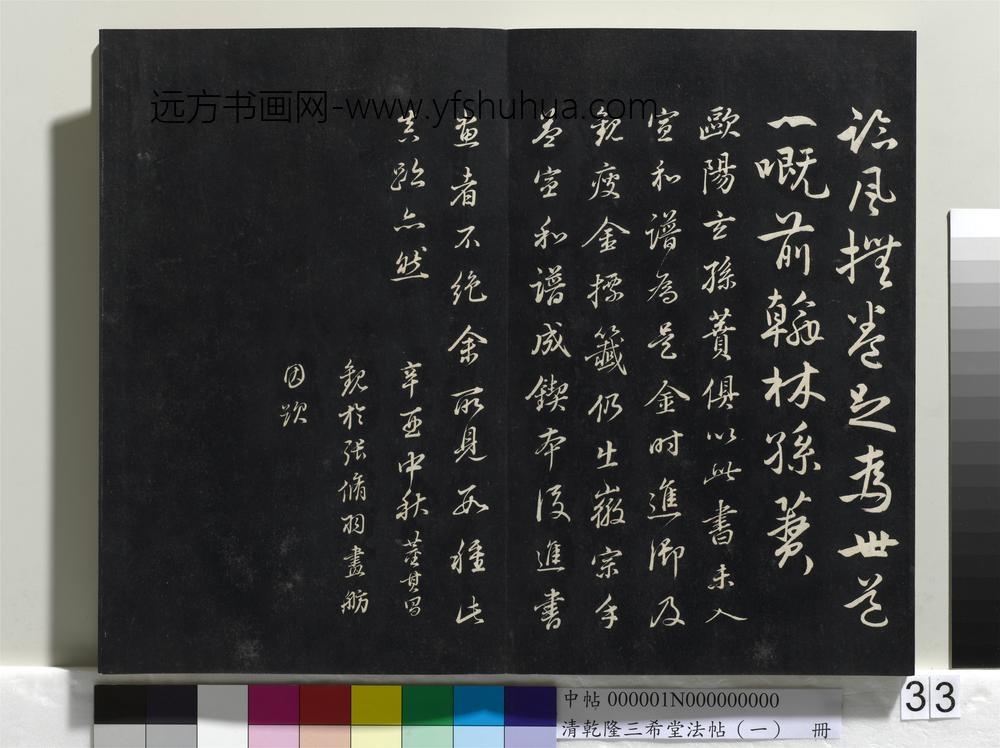 論風撫卷足為世道
一嘅前翰林孫蕡
歐陽玄孫蕡俱以此書未入
宣和譜為是金時進御及
觀瘦金標籤仍出徽宗手
蓋宣和譜成鍥本後進書
畫者不絕余所見數種此
真跡亦然
辛酉中秋董其昌
觀於張脩羽畫舫
因題
远方书画网-www.yfshuhua.com
中帖 000001N000000000
清乾隆三希堂法帖（一） 冊
33